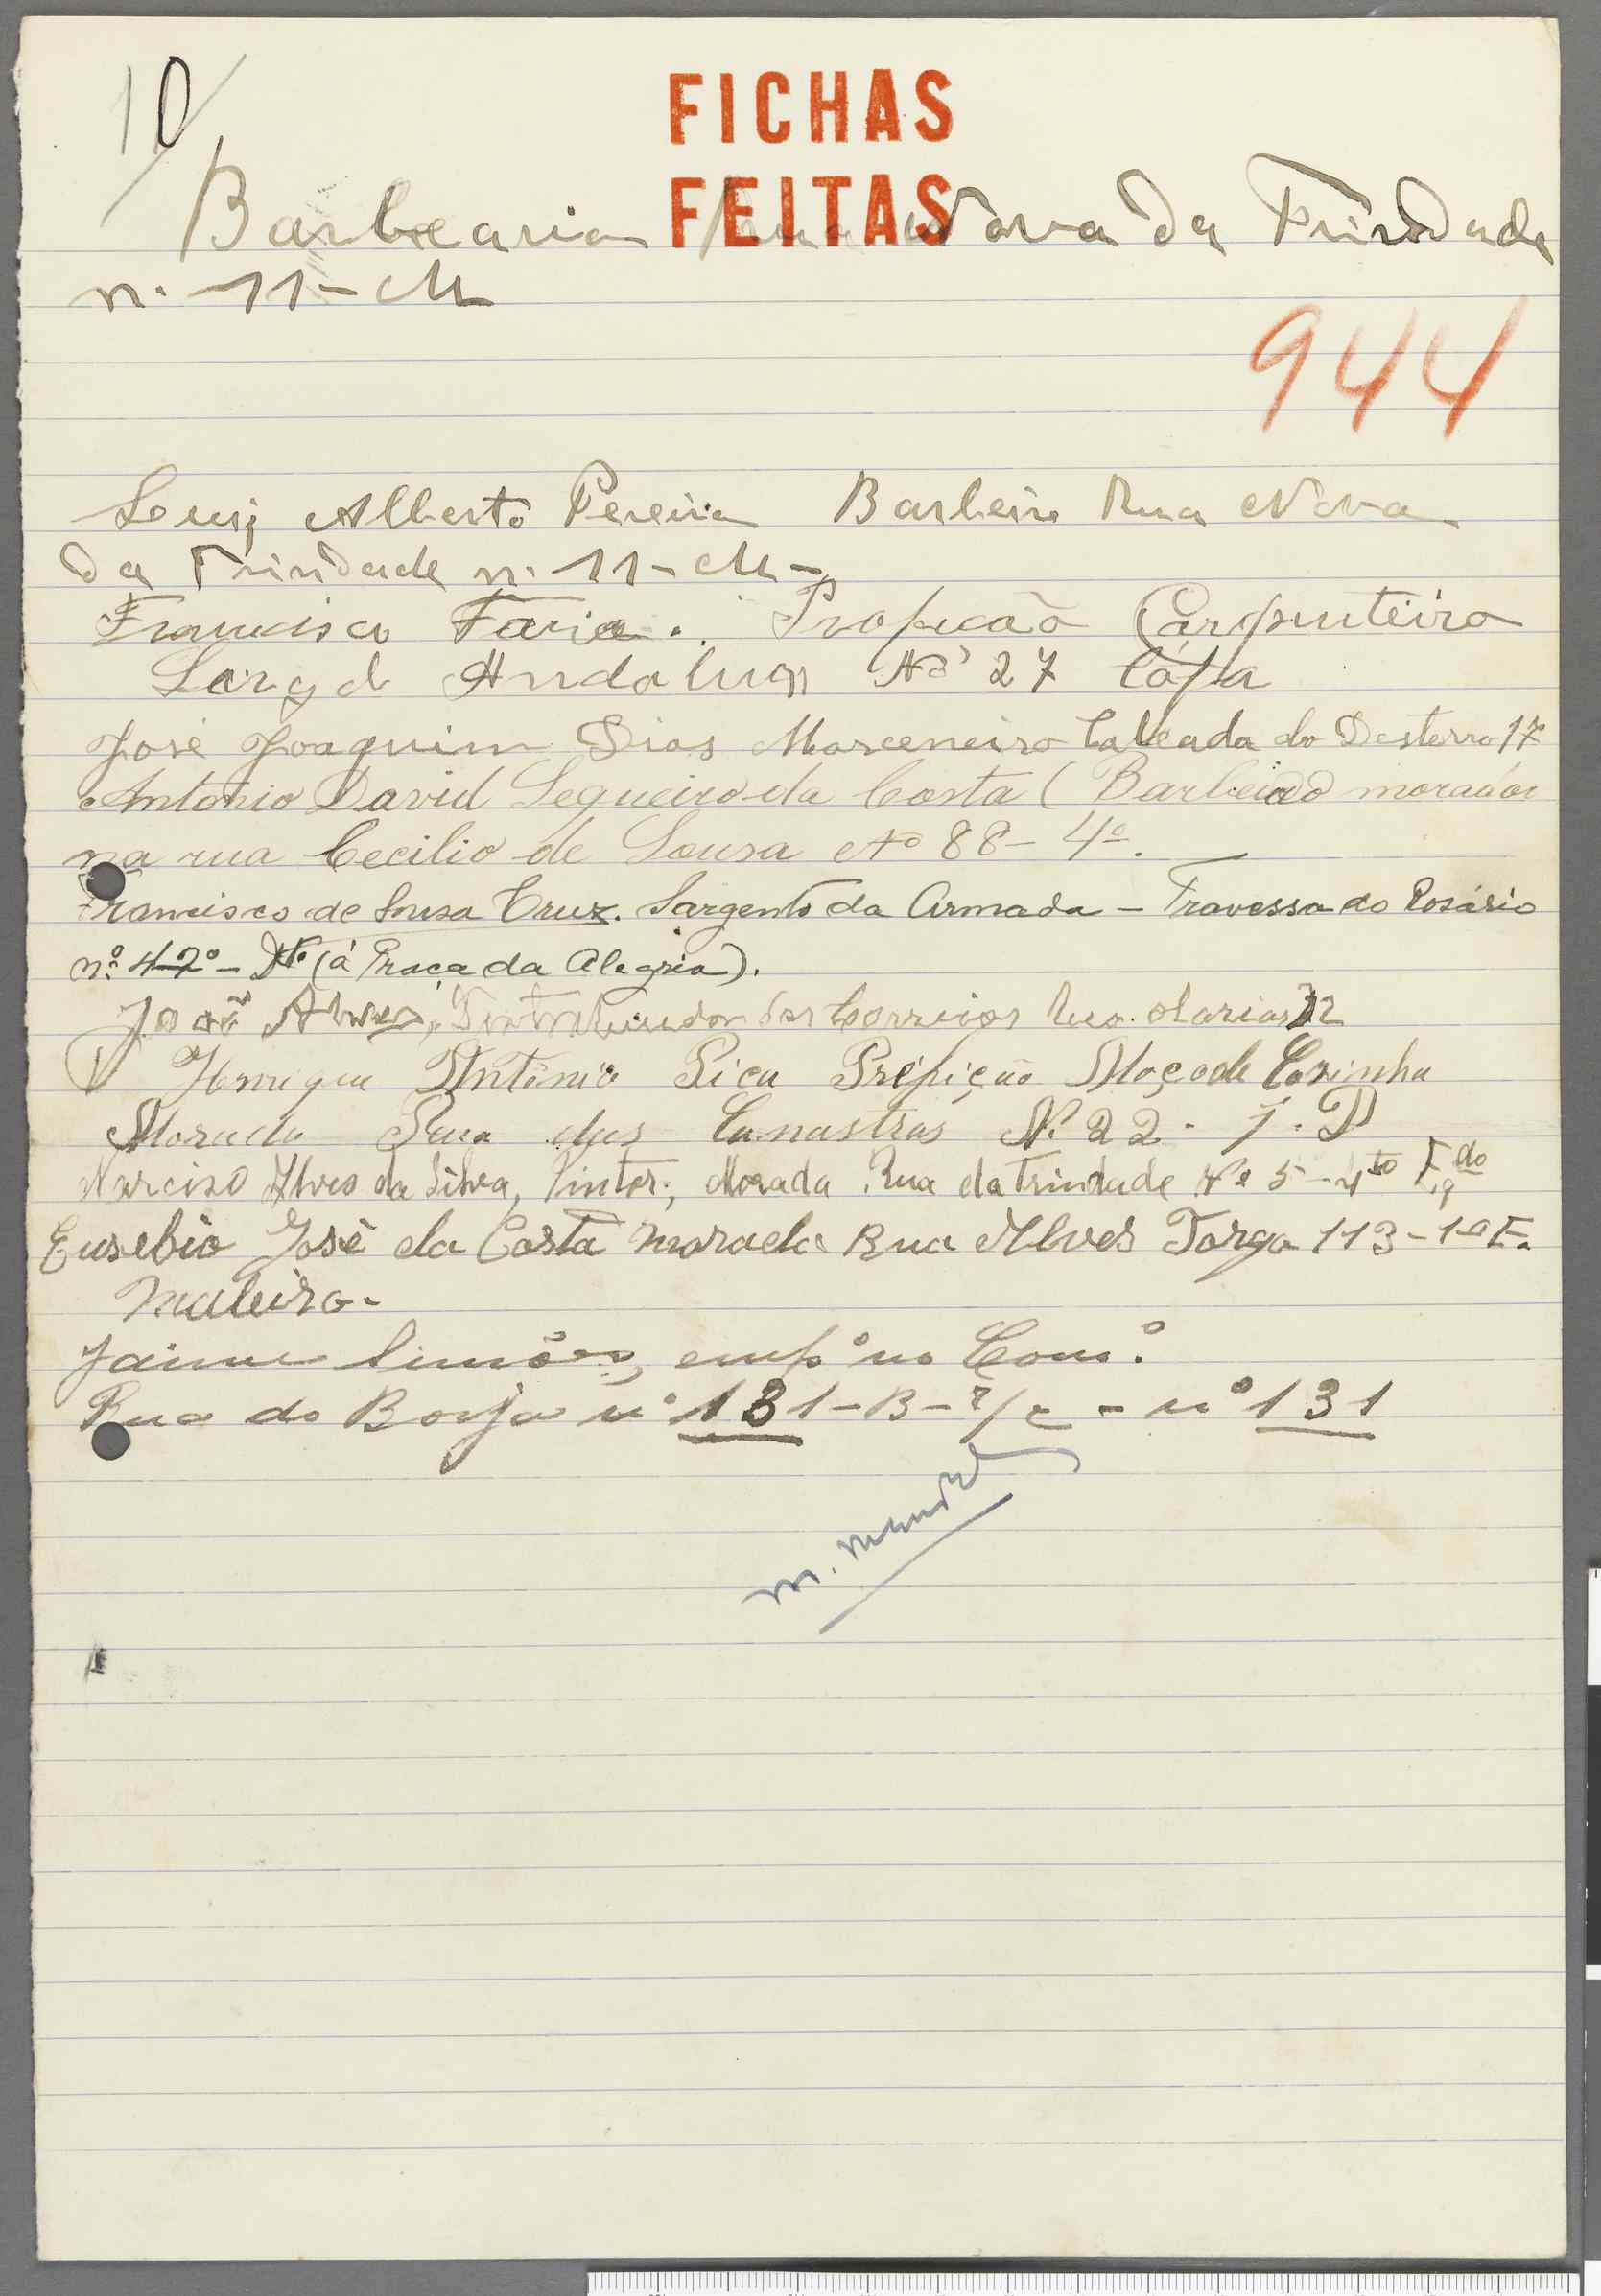 10
FICHAS
FEITAS
Barbearia Rua Nova da Trindade
n. 11-M
944
Luij Alberto Pereira Barbeiro Rua Nova
da Trindade n. 11-M-
Francisco Faria. Profição Carpinteiro
Larg d Andaluz Nº 27 Cáfa
José Joaquim Dias Marceneiro Calcada do Desterro 17
Antonio David Sequeira da Costa (Barbeiro morador
na rua Cecilio de Sousa Nº 88-4º.
Francisco de Sousa Cruz. Sargento da Armada - Travessa do Rosário
nº 4-2º- Dto (á Praça da Alegria).
João Alves, dos Correios Rua Olarias
Henrique António Pica Prefição Moço de Cosinha
Morada Rua das Canastras Nº 22. 1. D
Narciso Alves da Silva, Pintor, Morada Rua da Trindade Nº 5-4to Eqdo
Eusebio José da Costa morada Rua Alves Torgo 113-1º E.
Maleiro.
Jaime Simões, empº no Comº.
Rua do Borja nº 131-B-r/c - nº 131